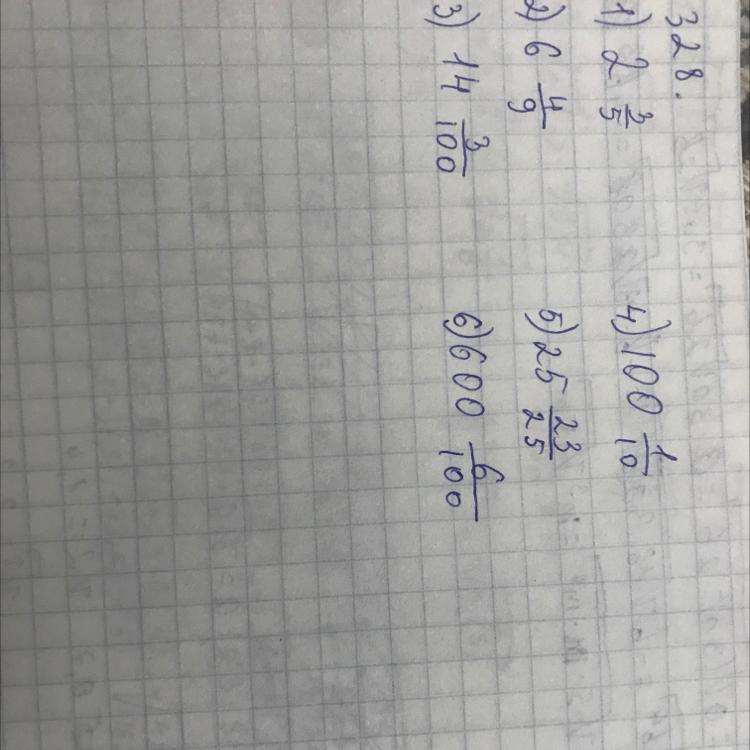 328.
1) 2 3/5
2) 6 4/9
3) 14 3/100
4) 100 1/10
5) 25 23/25
6) 600 6/100